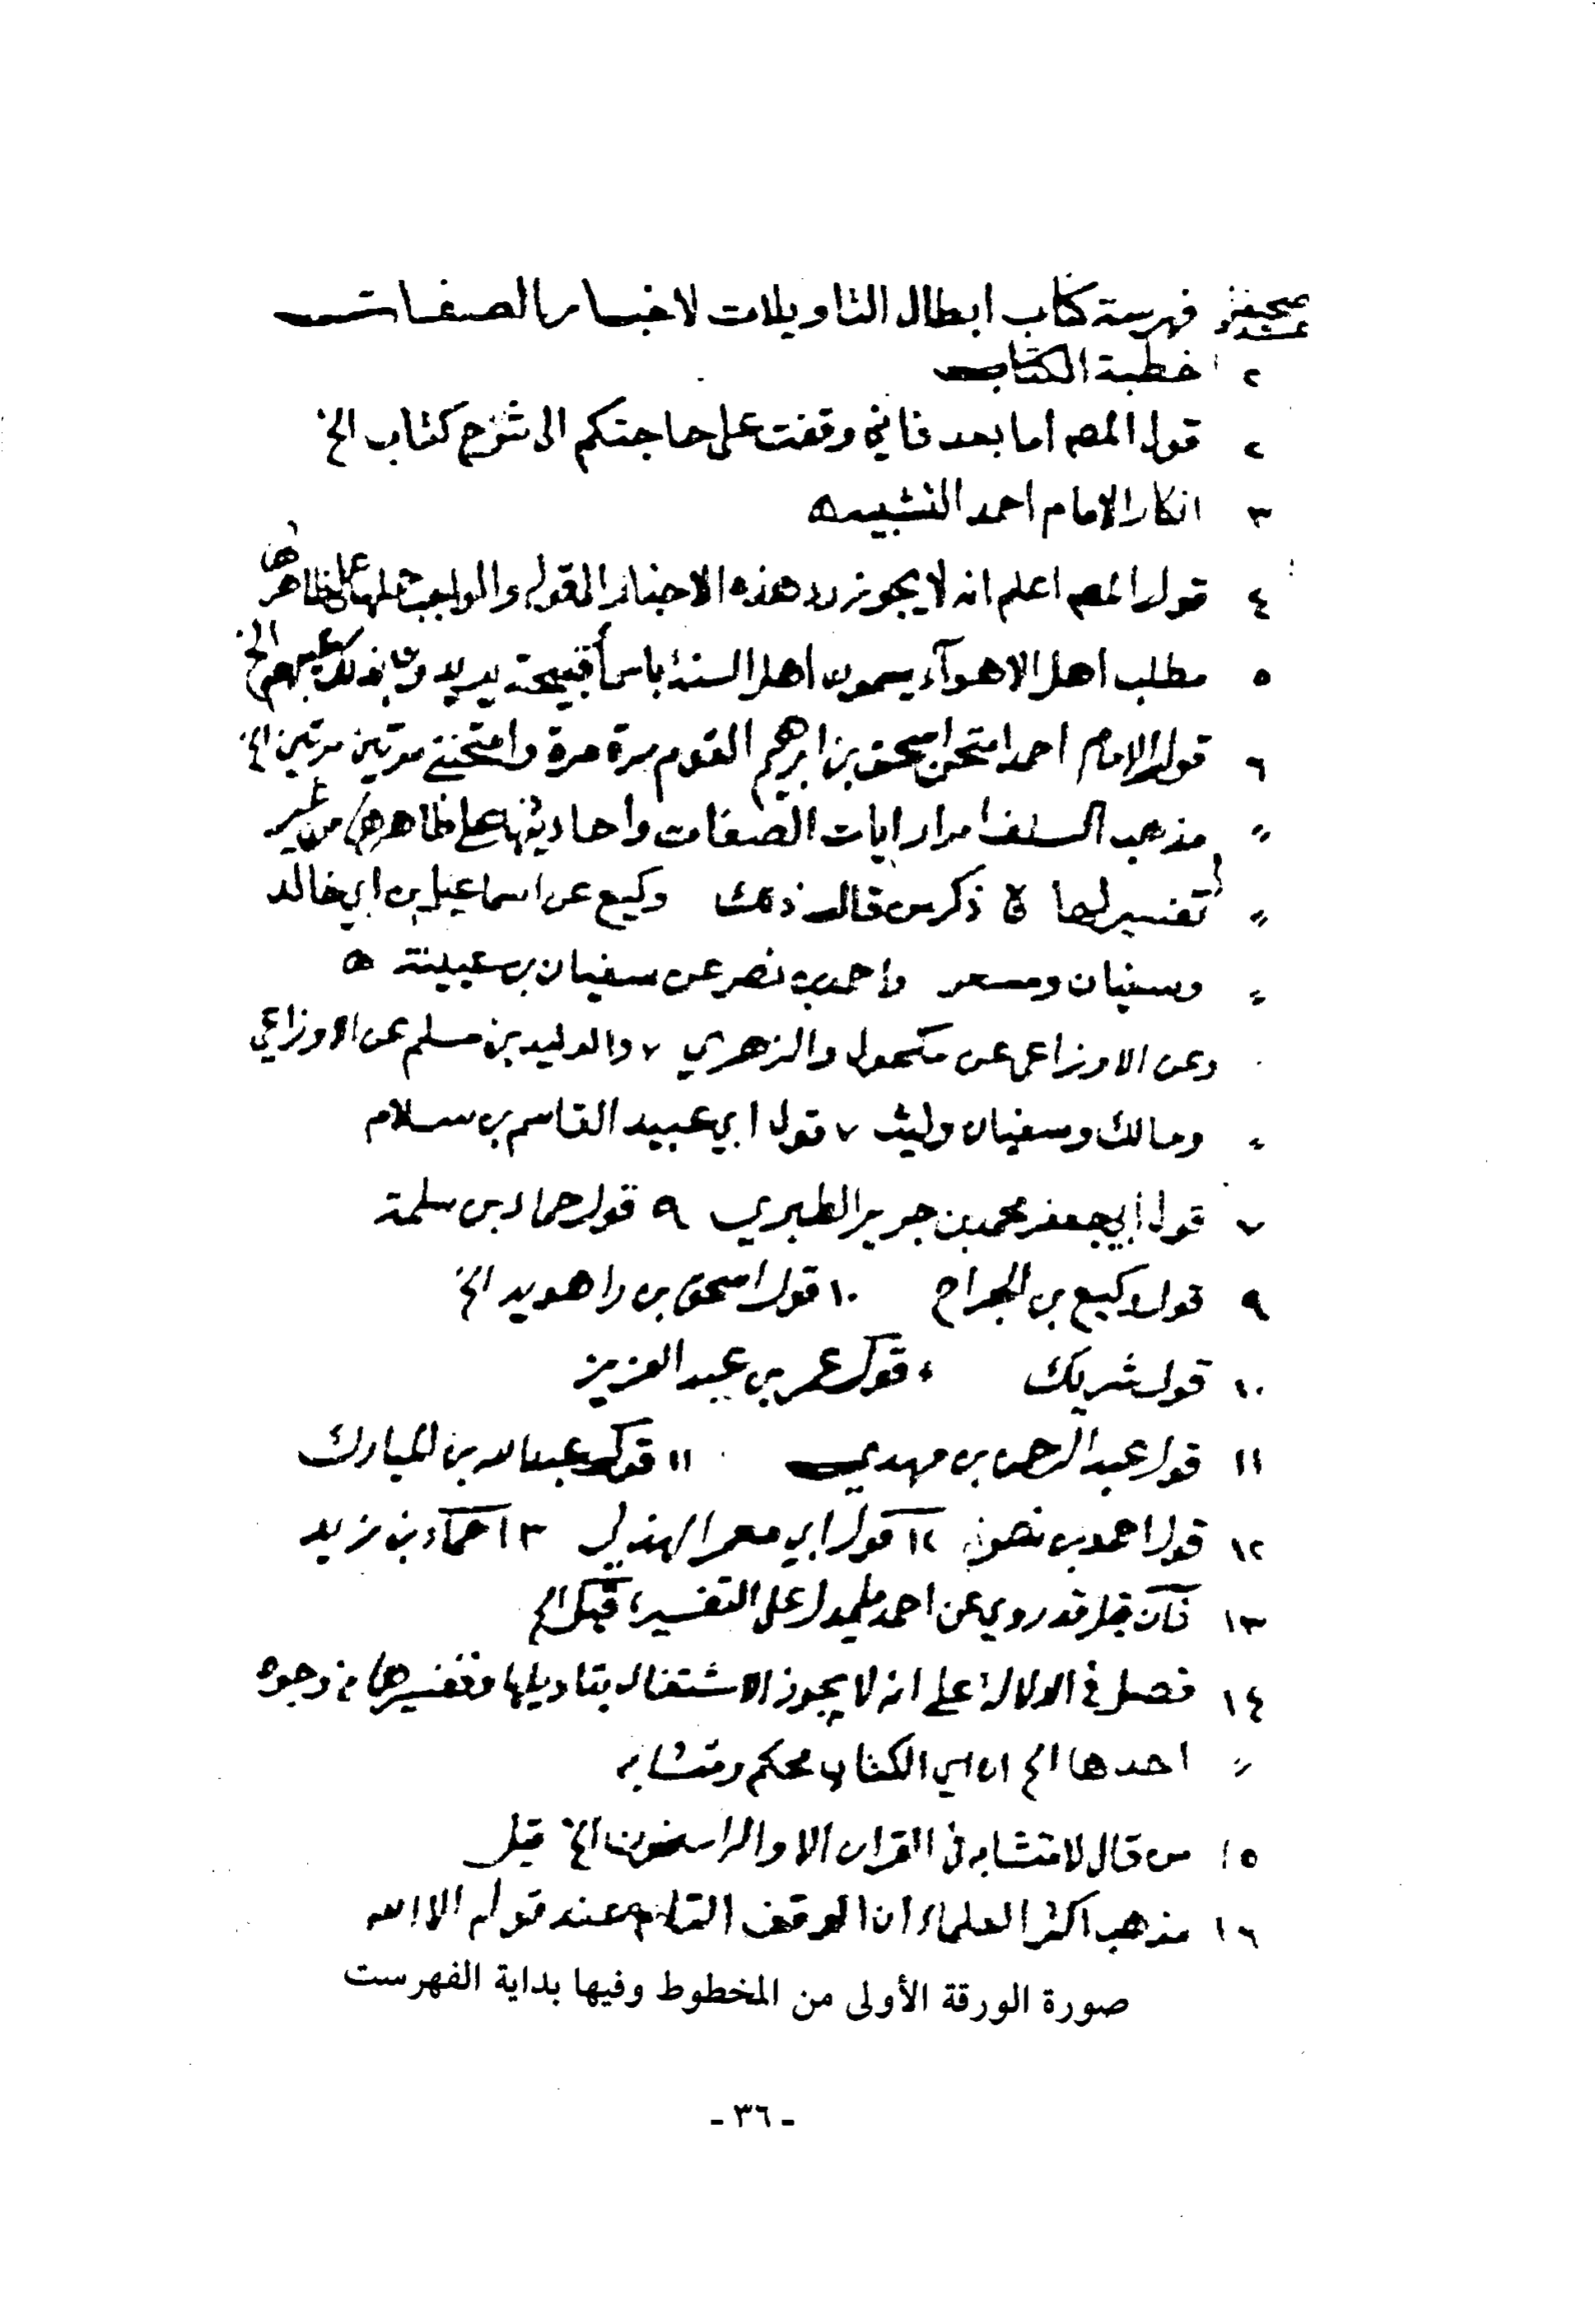 صحيفة فهرسة كتاب ابطال التاويلات لاخبار الصفات
٢ خطبة الكتاب
٢ قول المصـ اما بعد فاني وقفت على حاجتكم الى شرح كتاب الخ
٣ انكار الامام احمد التشبيه
٤ قول المصـ اعلم انه لا يجوز رد هذه الاخبار القول والواجب حملها على ظاهرها
٥ مطلب اهل الاهوآء يسمون اهل السنة باسمأ قبيحة يريدون بذلك عيبهم الخ
٦ قول الامام احمد امتحن اسحق بن ابرهيم القوم مرة مرة وامتحنني مرتين مرتين الخ
〃 مذهب السلف امرار ايات الصفات واحاديثها على ظاهرها من غير
〃 تفسير لها ذكر من قال ذلك وكيع عن اسماعيل بن ابي خالد
〃 وسفيان ومسعر واحمد بن نصر عن سفيان بن عيينة
وعن الاوزاعي عن مكحول والزهري ٧ والوليد بن مسلم عن الاوزاعي
〃 ومالك وسفيان وليث ٧ قول ابي عبيد القاسم بن سلام
٧ قول ابي جعفر محمد بن جرير الطبري ٩ قول حماد بن سلمة
٩ قول وكيع بن الجراح ١٠ قول اسحق بن راهويه الخ
١٠ قول شريك 〃 قول عمر بن عبد العزيز
١١ قول عبد الرحمن بن مهدي ١١ قول عبد الله بن المبارك
١٢ قول احمد بن نصر ١٢ قول ابي معمر الهذلي ١٣ حماد بن زيد
١٣ فآن قيل قد روي عن احمد ما يدل على التفسير، قيل الخ
١٤ فصل في الدلالة على انه لا يجوز الاشتغال بتاويلها وتفسيرها من وجوه
〃 احدها الخ ان اي الكتاب محكم ومتشابه
١٥ من قال لا متشابه في القران الا والراسخون الخ قيل
١٦ مذهب اكثر العلماء ان الوقف التام عند قوله الا الله
صورة الورقة الأولى من المخطوط وفيها بداية الفهرست
- ٣٦ -